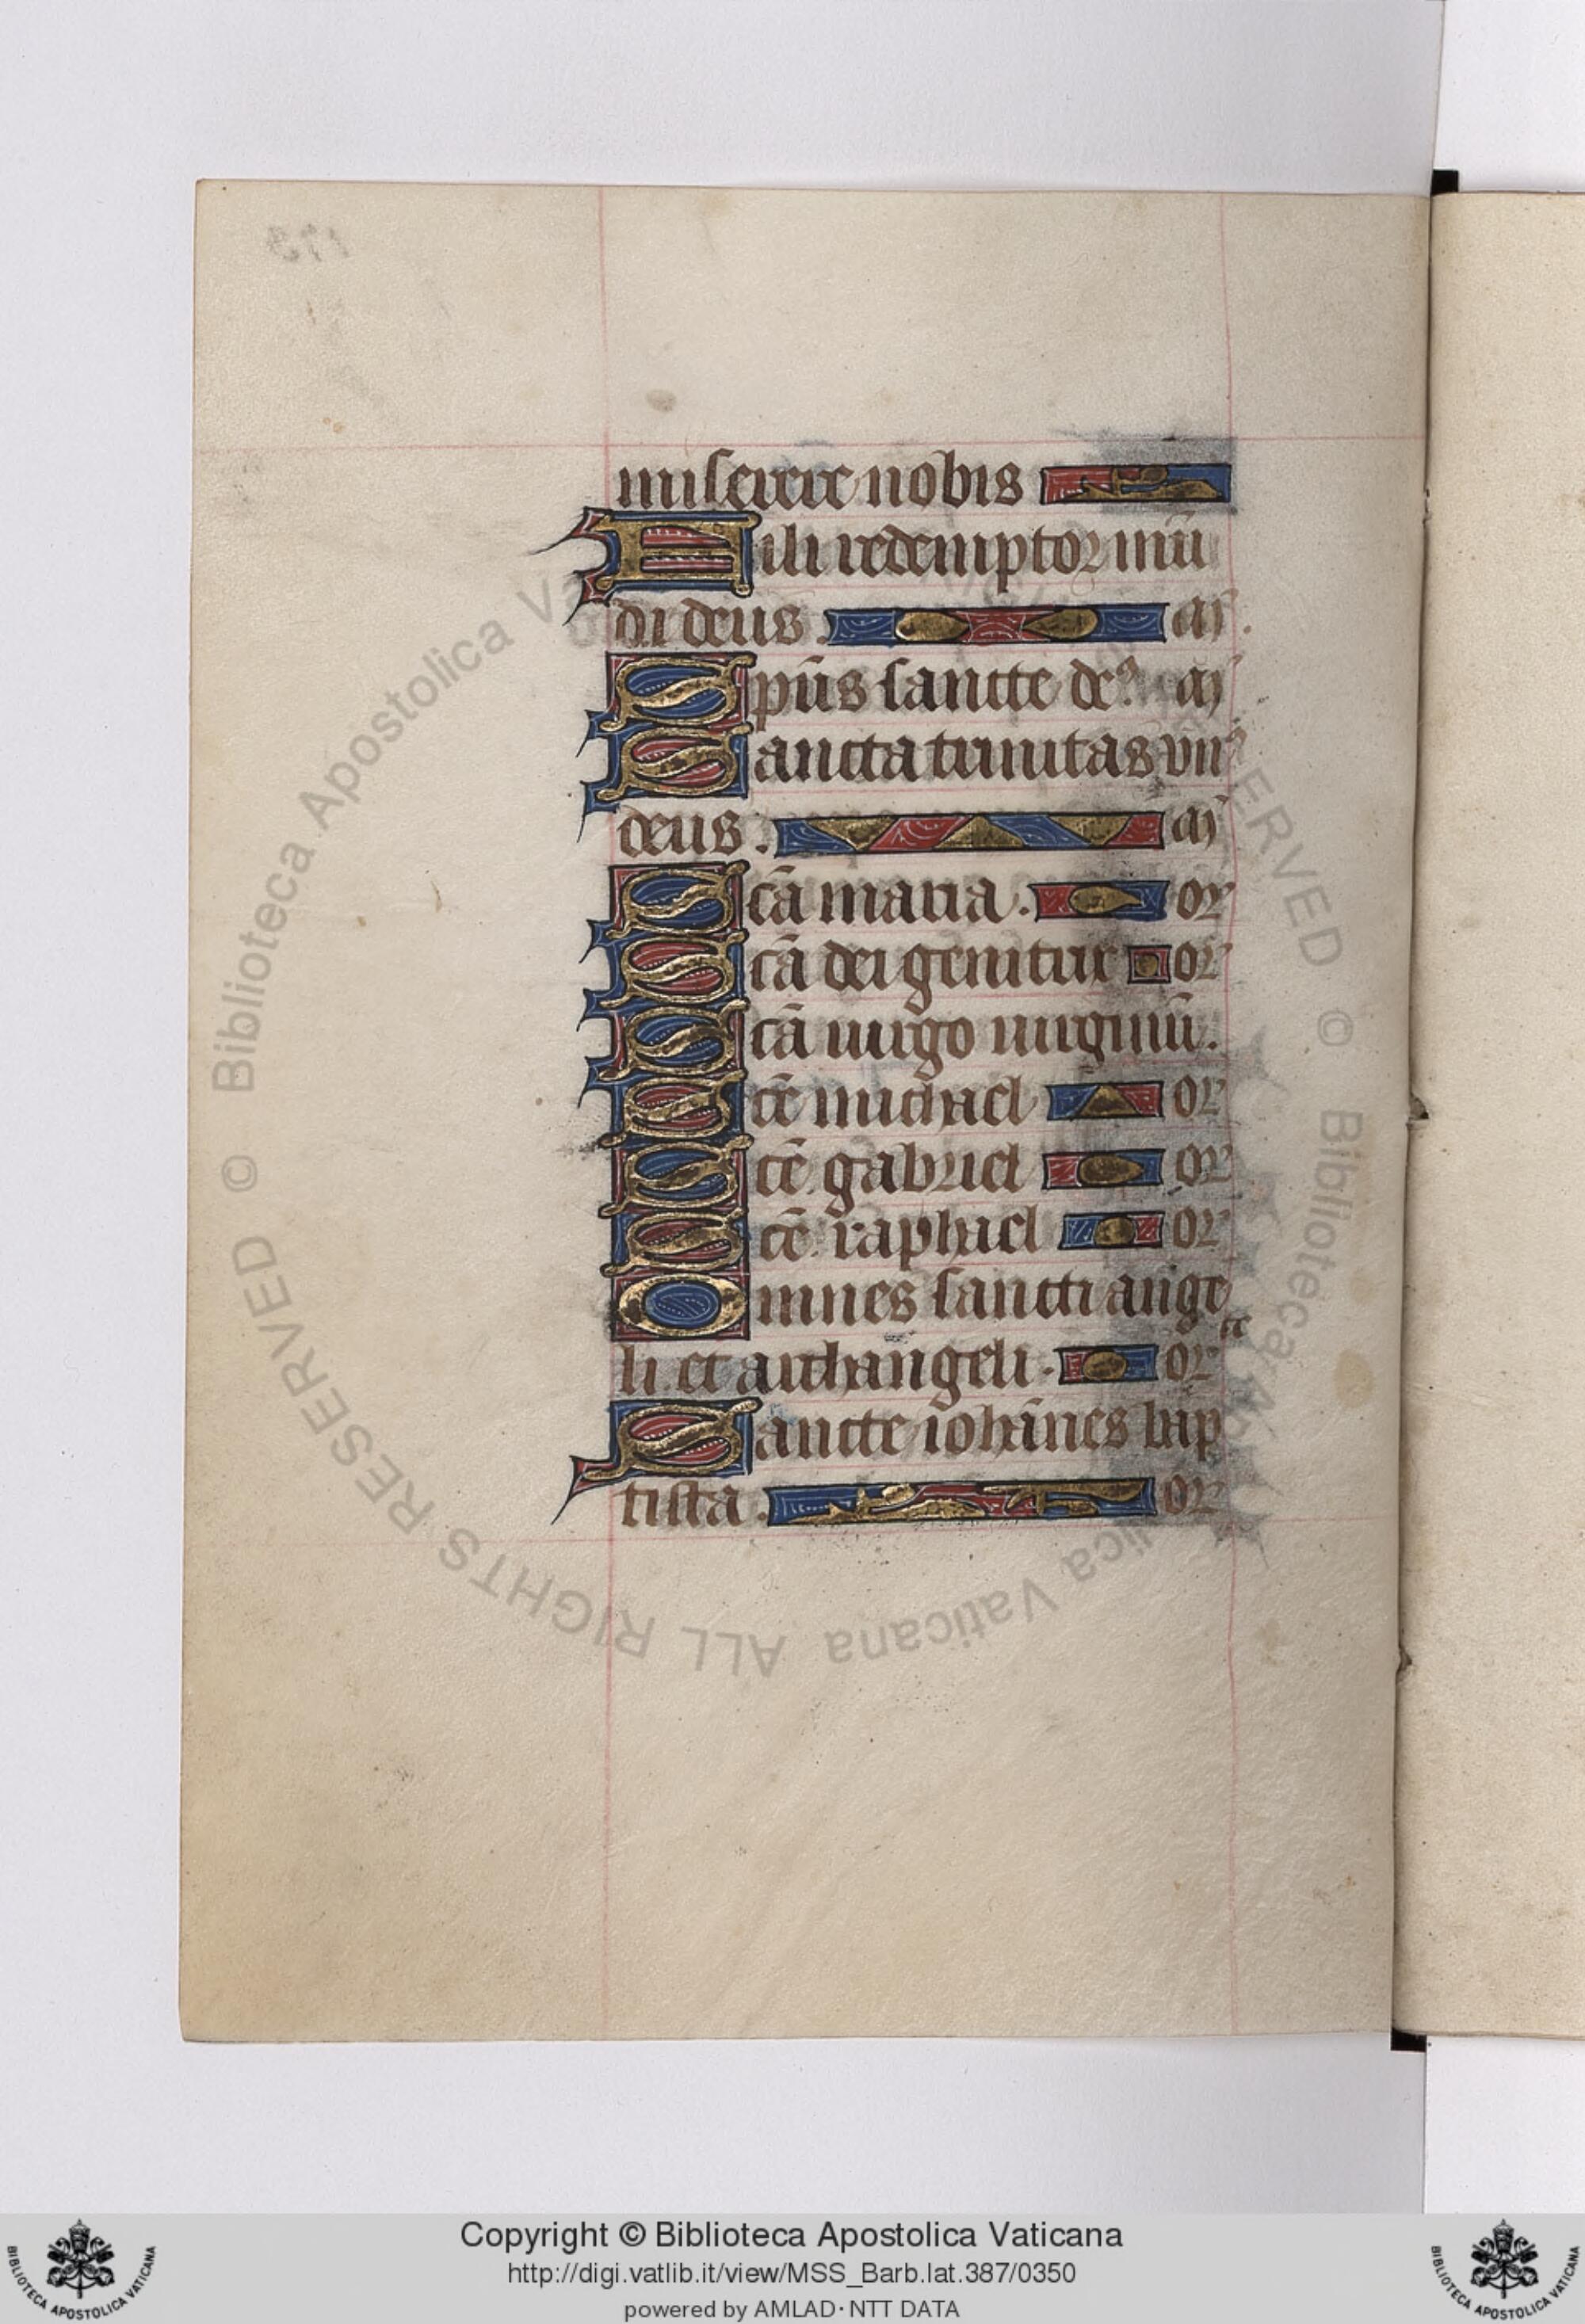 miserere nobis
Fili redemptor mū
di deus. m̄.
Sp̄us sancte deꝰ m̄
Sancta trinitas vnꝰ
deus. m̄
Sc̄a maria. or
Sc̄a dei genitrix or
Sc̄a uirgo uirginū.
Sc̄e michael or
Sc̄e gabriel or
Sc̄e raphael or
Omnes sancti ange
li et archangeli. or
Sancte ioh̄anes bap
tista. or
© Biblioteca Apostolica Vaticana ALL RIGHTS RESERVED
Copyright © Biblioteca Apostolica Vaticana
http://digi.vatlib.it/view/MSS_Barb.lat.387/0350
powered by AMLAD·NTT DATA
BIBLIOTECA APOSTOLICA VATICANA
BIBLIOTECA APOSTOLICA VATICANA